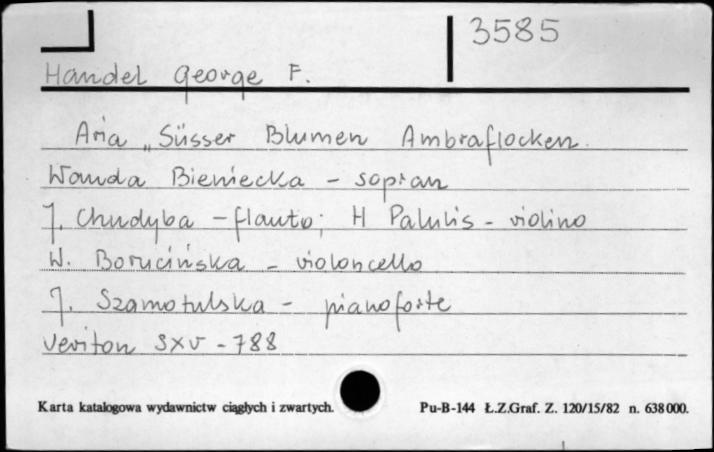 3585
Handel George F.
Aria „Süsser Blumen Ambraflocken.
Wanda Bieniecka – sopran
J. Chudyba – flauto; H Palulis – violino
W. Borucińska – violoncello
J. Szamotulska – pianoforte
Veriton SXV – 788
Karta katalogowa wydawnictw ciągłych i zwartych.
Pu-B-144 Ł.Z.Graf. Z. 120/15/82 n. 638000.